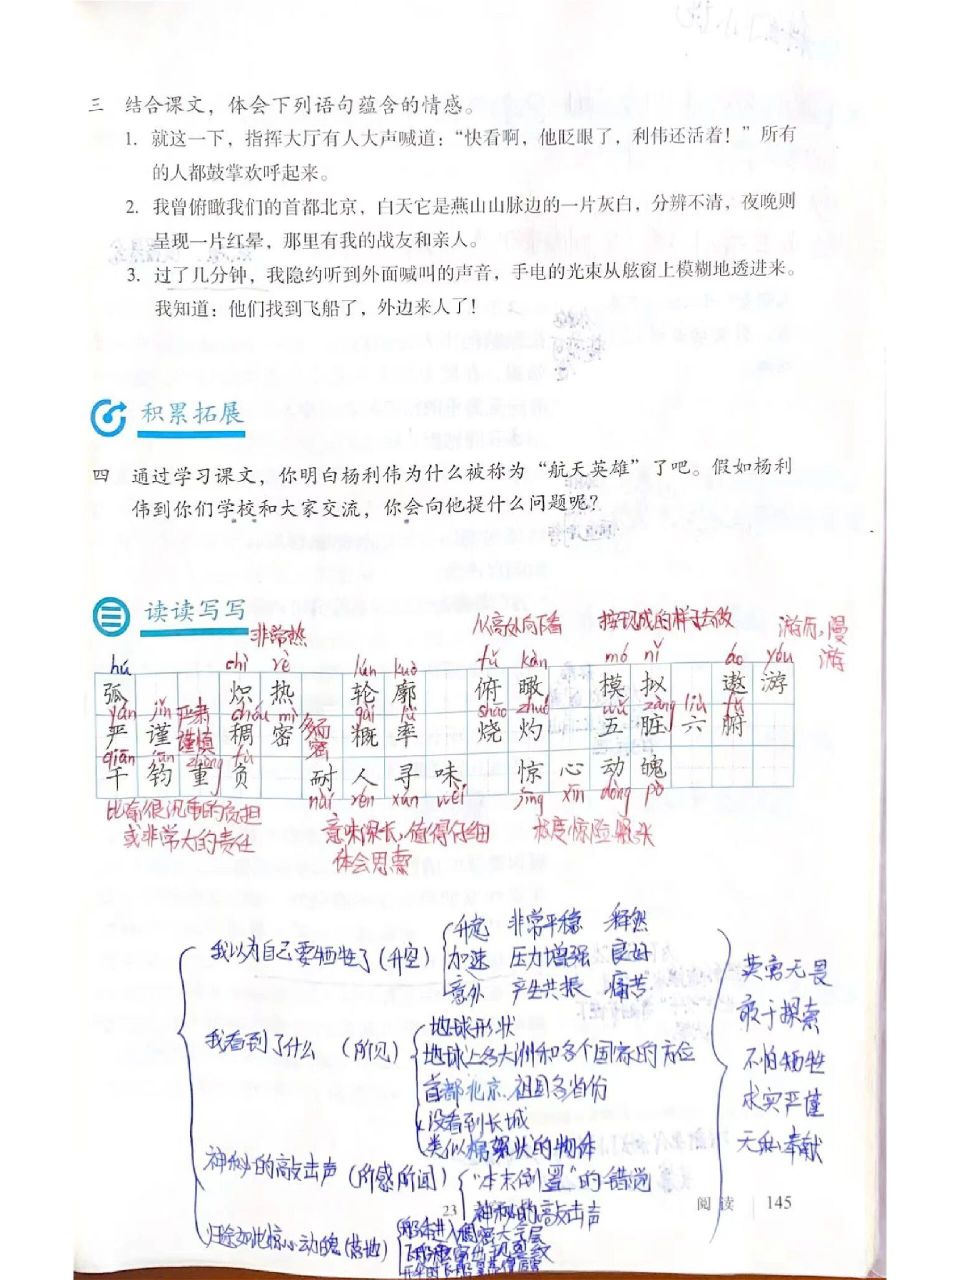 三 结合课文，体会下列语句蕴含的情感。
1. 就这一下，指挥大厅有人大声喊道：“快看啊，他眨眼了，利伟还活着！”所有
的人都鼓掌欢呼起来。
2. 我曾俯瞰我们的首都北京，白天它是燕山山脉边的一片灰白，分辨不清，夜晚则
呈现一片红晕，那里有我的战友和亲人。
3. 过了几分钟，我隐约听到外面喊叫的声音，手电的光束从舷窗上模糊地透进来。
我知道：他们找到飞船了，外边来人了！
积累拓展
四 通过学习课文，你明白杨利伟为什么被称为“航天英雄”了吧。假如杨利
伟到你们学校和大家交流，你会向他提什么问题呢？
读读写写
非常热 从高处向下看 按现成的样子去做 游历，漫游
hú chì rè lún kuò fǔ kàn mó nǐ áo yóu
弧 炽热 轮廓 俯瞰 模拟 遨游
yán jǐn 严肃谨慎 chóu mì 多而密 gài lǜ shāo zhuó wǔ zàng liù fǔ
严谨 稠密 概率 烧灼 五脏六腑
qiān jūn zhòng fù
千钧重负 耐人寻味 惊心动魄
nài rén xún wèi jīng xīn dòng pò
比喻很沉重的负担
或非常大的责任
意味深长，值得仔细
体会思索
我以为自己要牺牲了（升空）
升起 非常平稳 释然
加速 压力增强 良好
意外 产生共振 痛苦
我看到了什么（所见）
地球形状
地球上各大洲和各个国家的方位
首都北京、祖国各省份
没看到长城
类似棉絮状的物体
神秘的敲击声（所感所闻）
“本末倒置”的错觉
神秘的敲击声
归途如此惊心动魄（落地）
英勇无畏
敢于探索
不怕牺牲
求实严谨
无私奉献
23
阅读 145